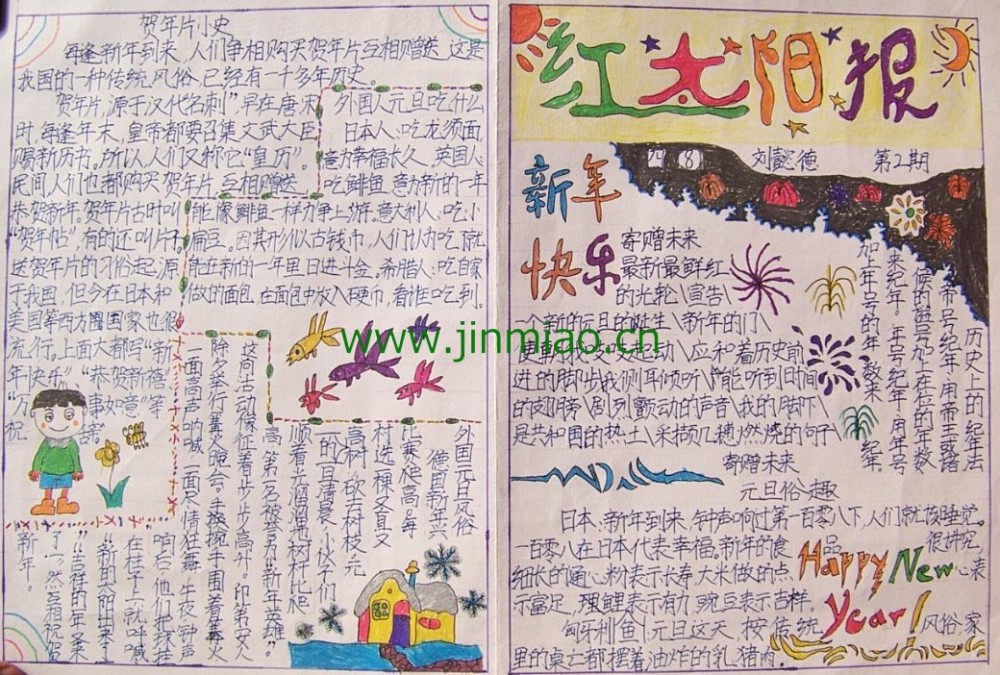 贺年片小史
每逢新年到来,人们争相购买贺年片互相赠送,这是
我国的一种传统风俗,已经有一千多年历史。
贺年片,源于汉代名刺"早在唐宋
时,每逢年末,皇帝都要召集文武大臣
赐新历书。所以人们又称它"皇历"。
民间人们也都购买贺年片,互相赠送
恭贺新年。贺年片古时叫
"贺年帖",有的还叫片子
送贺年片的习俗起源
于我国,但今在日本和
美国等西方国家也很
流行。上面大都写"新
年快乐""恭贺新禧"
"万事如意"等
祝
外国人元旦吃什么
日本人:吃龙须面
意为幸福长久。英国人:
吃鲱鱼,意为新的一年
能像鲱鱼一样力争上游。意大利人:吃小
扁豆。因其形似古钱币,人们认为吃了就
能在新的一年里日进斗金。希腊人:吃自家
做的面包,在面包中放入硬币,看谁吃到。
外国元旦风俗
德国新年六
比赛爬高。每
村选一棵又直又
高树,砍去树枝,元
一的一旦清晨,小伙子们
顺着光溜溜的树杆比爬
高,第一名被誉为"新年英雄"
这向活动像征着步步高升。印第安人
阵多举行篝火晚会。手挽手围着篝火
一面高声呐喊,一面尽情狂舞,午夜钟声
响后,他们把球挂
在柱子上就呼喊
"新的太阳出来了"
"吉祥的一年来
了"。然后互相祝贺
新年。
红太阳报
刘懿德
第2期
新年
快乐
寄赠未来
最新最鲜红
的光轮\宣告\
一个新的元旦的诞生\新年的门\
动\应和着历史前
进的脚步我侧耳倾听\能听到日间
的\剧烈颤动的声音\我的脚下\
是共和国的热土\采撷几穗燃烧的句子
寄赠未来
历史上的纪年法
帝号纪年:用帝王或诸
候的谥号加上在位的年数
来纪年。年号纪年:用年号
加上年号的年数来纪年
元旦俗趣
日本:新年到来,钟声响过第一百零八下,人们就该睡觉。
一百零八在日本代表幸福。新年的食品很讲究,
细长的通心粉表示长寿,大米做的点心表
示富足,理鲤表示有力,豌豆表示吉样。
匈牙利鱼\元旦这天,按传统风俗,家
里的桌上都摆着油炸的乳猪肉.
Happy New
Year!
www.jinmiao.cn